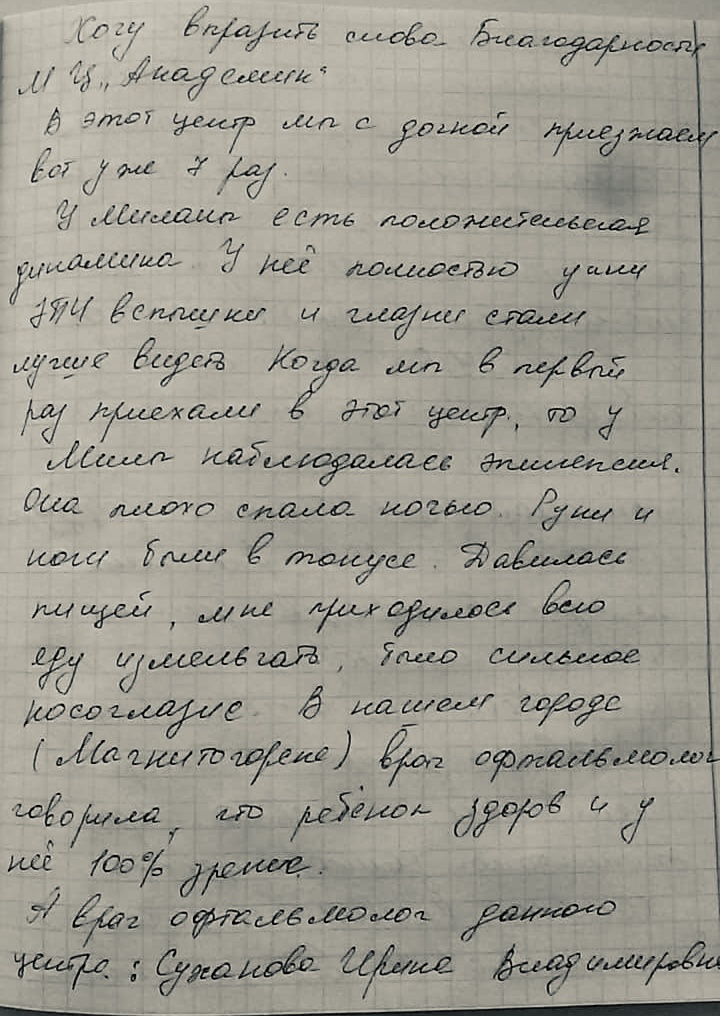 Хочу выразить слова Благодарности
МЦ „Академик“
В этот центр мы с дочкой приезжаем
вот уже 7 раз.
У Миланы есть положительная
динамика У неё полностью ушли
ЭПИ вспышки и глазки стали
лучше видеть Когда мы в первый
раз приехали в этот центр, то у
Милы наблюдалась эпилепсия.
Она плохо спала ночью. Руки и
ноги были в тонусе. Давилась
пищей, мне приходилось всю
еду измельчать, было сильное
косоглазие. В нашем городе
(Магнитогорске) врач офтальмолог
говорила, что ребёнок здоров и у
неё 100% зрение.
А врач офтальмолог данного
центра: Суханова Ирина Владимировна